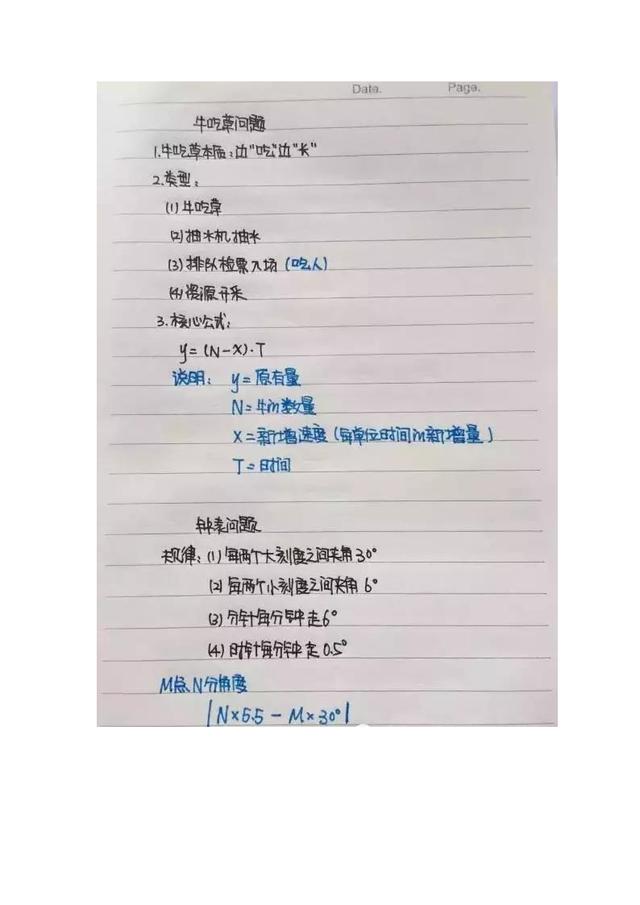 Date. Page.
牛吃草问题
1.牛吃草本质:边"吃"边"长"
2.类型:
(1)牛吃草
(2)抽水机抽水
(3)排队检票入场(吃人)
(4)资源开采
3.核心公式:
y=(N-X)·T
说明: y=原有量
N=牛的数量
X=新增速度(每单位时间的新增量)
T=时间
钟表问题
规律:(1)每两个大刻度之间夹角30°
(2)每两个小刻度之间夹角6°
(3)分针每分钟走6°
(4)时针每分钟走0.5°
M点N分角度
|N×5.5-M×30°|